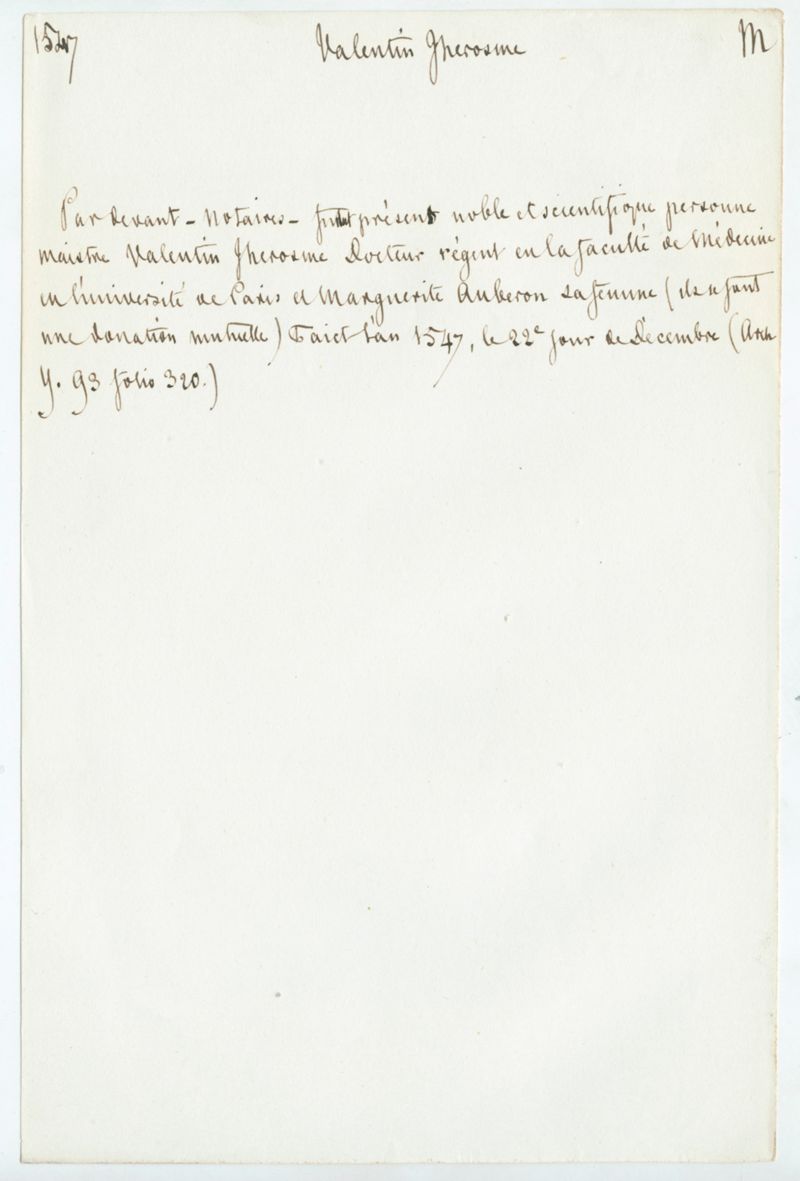 1547 Valentin Jherosme M
Par devant - Notaires - présent noble et scientifique personne
maistre Valentin Jherosme Docteur régent en la faculté de Médecine
en l'université de Paris et Marguerite Auberon sa femme (ils se font
une donation mutuelle) Faict l'an 1547, le 22e jour de Décembre (Arch
Y. 93 folio 320.)